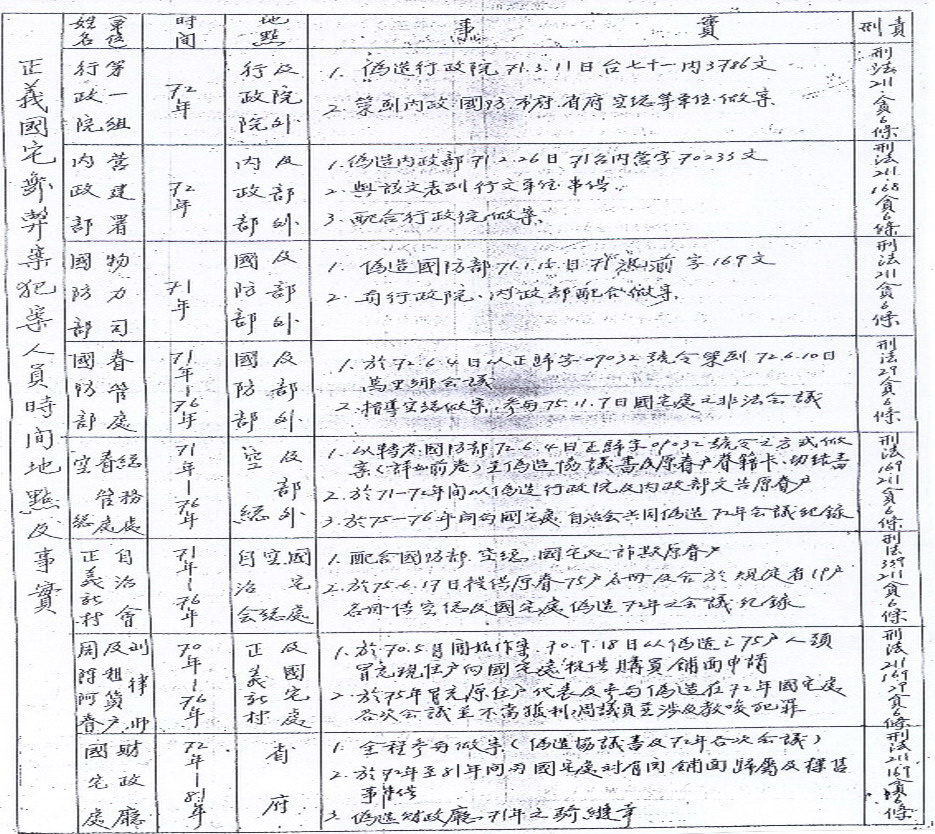 正義國宅弊案犯案人員時間地點及事實
單位姓名
時間
地點
事實
刑責
行政院第一組
72年
行政院及院外
1. 偽造行政院71.3.11日台七十一內3786文
2. 策劃內政、國防、市府、省府、空總等單位做案
刑法211貪6條
內政部營建署
72年
內政部及部外
1. 偽造內政部71.2.26日71台內營字70233文
2. 與該文表列行文單位串供
3. 配合行政院做案
刑法211 168貪6條
國防部物力司
71年
國防部及部外
1. 偽造國防部71.1.15日 字169文
2. 與行政院、內政部配合做案
刑法211貪6條
國防部眷管處
71年-76年
國防部及部外
1. 於72.6.4日以正歸字09032號令策劃72.6.10日
萬里鄉會議
2. 指導空總做案,參與75.11.7日國宅處之非法會議
刑法29貪6條
空總眷管處 總務處
71年-76年
空總及部外
1. 以轉發國防部72.6.4日正歸字09032號令之方式做
案(詳如前卷)並偽造協議書及原眷戶眷籍卡、切結書
2. 於71-72年間以偽造行政院及內政部文告原眷戶
3. 於75-76年間與國宅處、自治會共同偽造72年會議紀錄
刑法169 211貪6條
正義新村自治會
71年-76年
自治會 空總 國宅處
1. 配合國防部、空總、國宅處詐欺原眷戶
2. 於75.6.17日提供原眷75戶名冊及合於規定者19戶
名冊俾空總及國宅處偽造72年之會議紀錄
刑法339 211貪6條
周陳阿春及租賃戶 律師
70年-76年
正義新村及國宅處
1. 於70.5月開始作案,70.9.18日以偽造之75戶人頭
冒充現住戶向國宅處提供購買舖面申請
2. 於75年冒充原住戶代表及參與偽造在72年國宅處
各次會議並不當獲利,周議員並涉及教唆犯罪
刑法211 169 29貪6條
國宅處 財政廳
72年-81年
省府
1. 全程參與做案(偽造協議書及72年各次會議)
2. 於72年至81年間與國宅處對有關舖面歸屬及標售
事串供
3. 偽造財政廳71年之騎縫章
刑法211 169貪6條